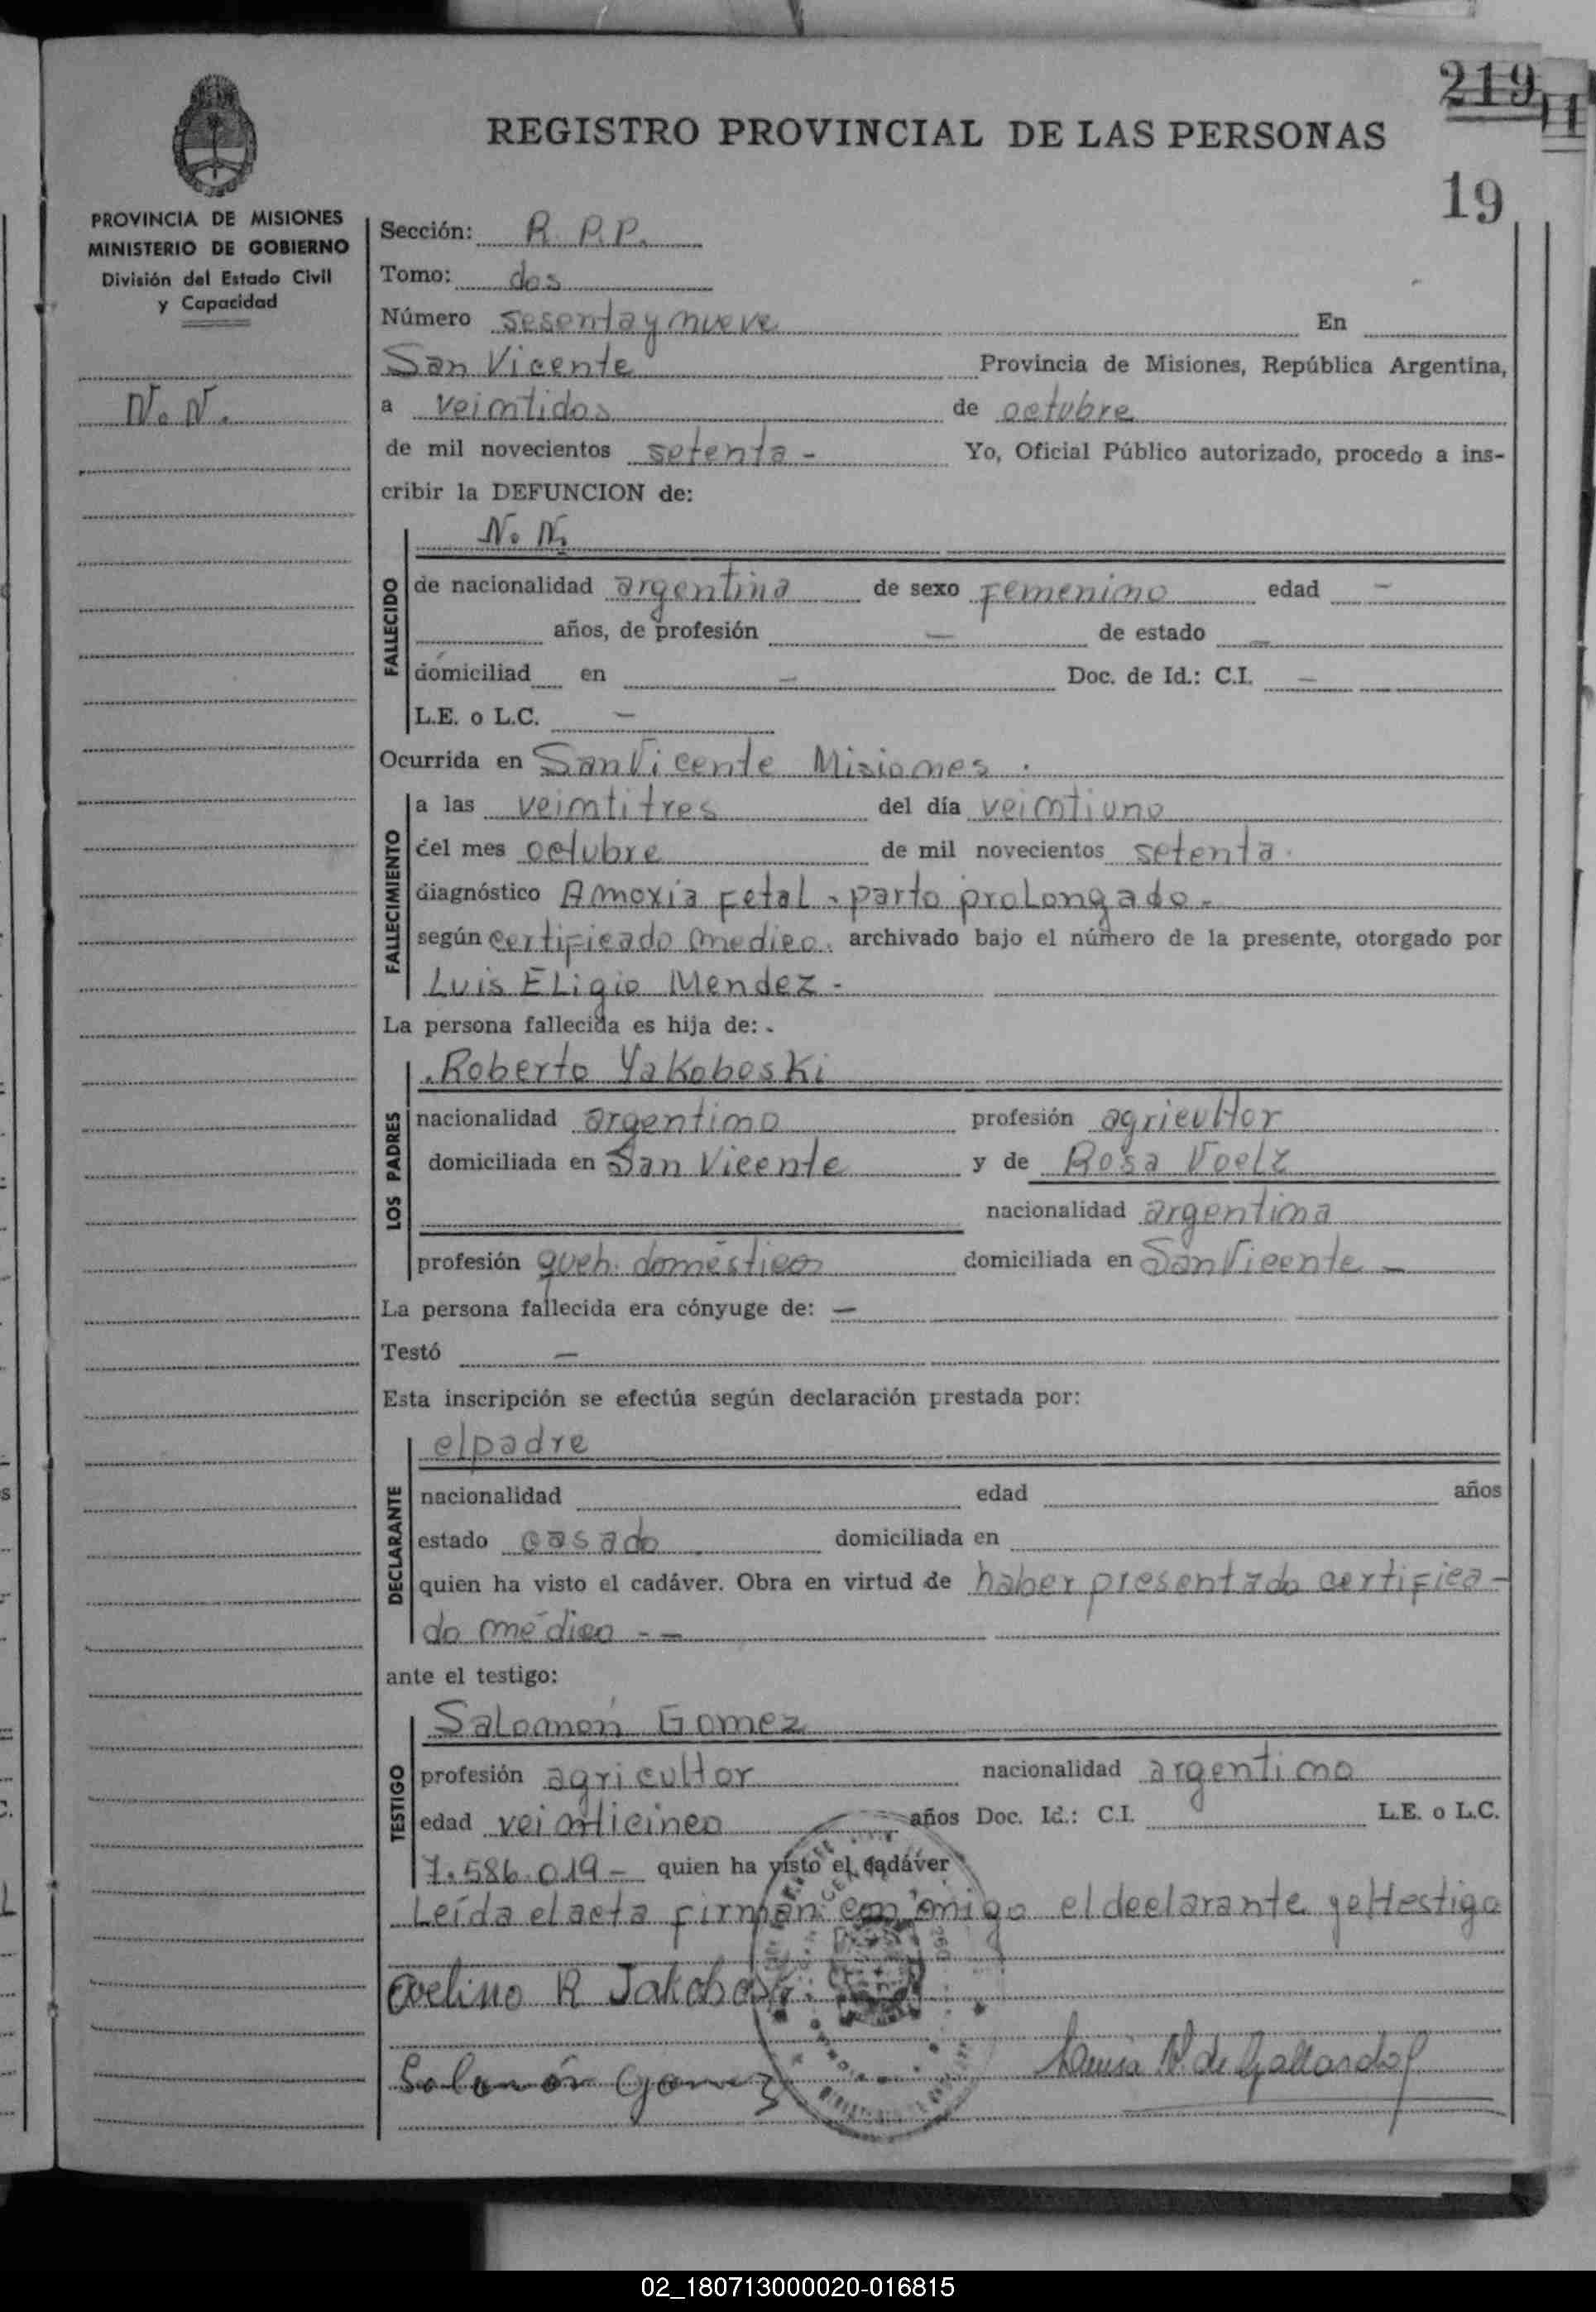 219
11
REGISTRO PROVINCIAL DE LAS PERSONAS
19
PROVINCIA DE MISIONES
MINISTERIO DE GOBIERNO
División del Estado Civil
y Capacidad
N. N.
Sección: R. P.P.
Tomo: dos
Número sesenta y nueve En
San Vicente Provincia de Misiones, República Argentina,
a veintidos de octubre
de mil novecientos setenta - Yo, Oficial Público autorizado, procedo a ins-
cribir la DEFUNCION de:
N. N.
FALLECIDO
de nacionalidad argentina de sexo femenino edad -
años, de profesión - de estado -
domiciliad en - Doc. de Id.: C.I. -
L.E. o L.C. -
Ocurrida en San Vicente Misiones.
FALLECIMIENTO
a las veintitres del día veintiuno
del mes octubre de mil novecientos setenta.
diagnóstico Anoxia fetal - parto prolongado -
según certificado medico. archivado bajo el número de la presente, otorgado por
Luis Eligio Mendez -
La persona fallecida es hija de: -
LOS PADRES
Roberto Yakoboski
nacionalidad argentino profesión agricultor
domiciliada en San Vicente y de Rosa Voelz
nacionalidad argentina
profesión queh. domésticos domiciliada en San Vicente -
La persona fallecida era cónyuge de: -
Testó -
Esta inscripción se efectúa según declaración prestada por:
DECLARANTE
el padre
nacionalidad edad años
estado casado domiciliada en
quien ha visto el cadáver. Obra en virtud de haber presentado certifica-
do médico - -
ante el testigo:
TESTIGO
Salomón Gomez
profesión agricultor nacionalidad argentino
edad veinticinco años Doc. Id.: C.I. L.E. o L.C.
7.586.019 - quien ha visto el cadáver
Leída el acta firman conmigo el declarante y el testigo
Avelino R Jakoboski
Salomón Gomez
de Gallardo
02_180713000020-016815